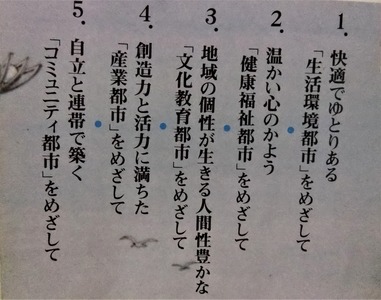 1. 快適でゆとりある
「生活環境都市」をめざして
2. 温かい心のかよう
「健康福祉都市」をめざして
3. 地域の個性が生きる人間性豊かな
「文化教育都市」をめざして
4. 創造力と活力に満ちた
「産業都市」をめざして
5. 自立と連帯で築く
「コミュニティ都市」をめざして